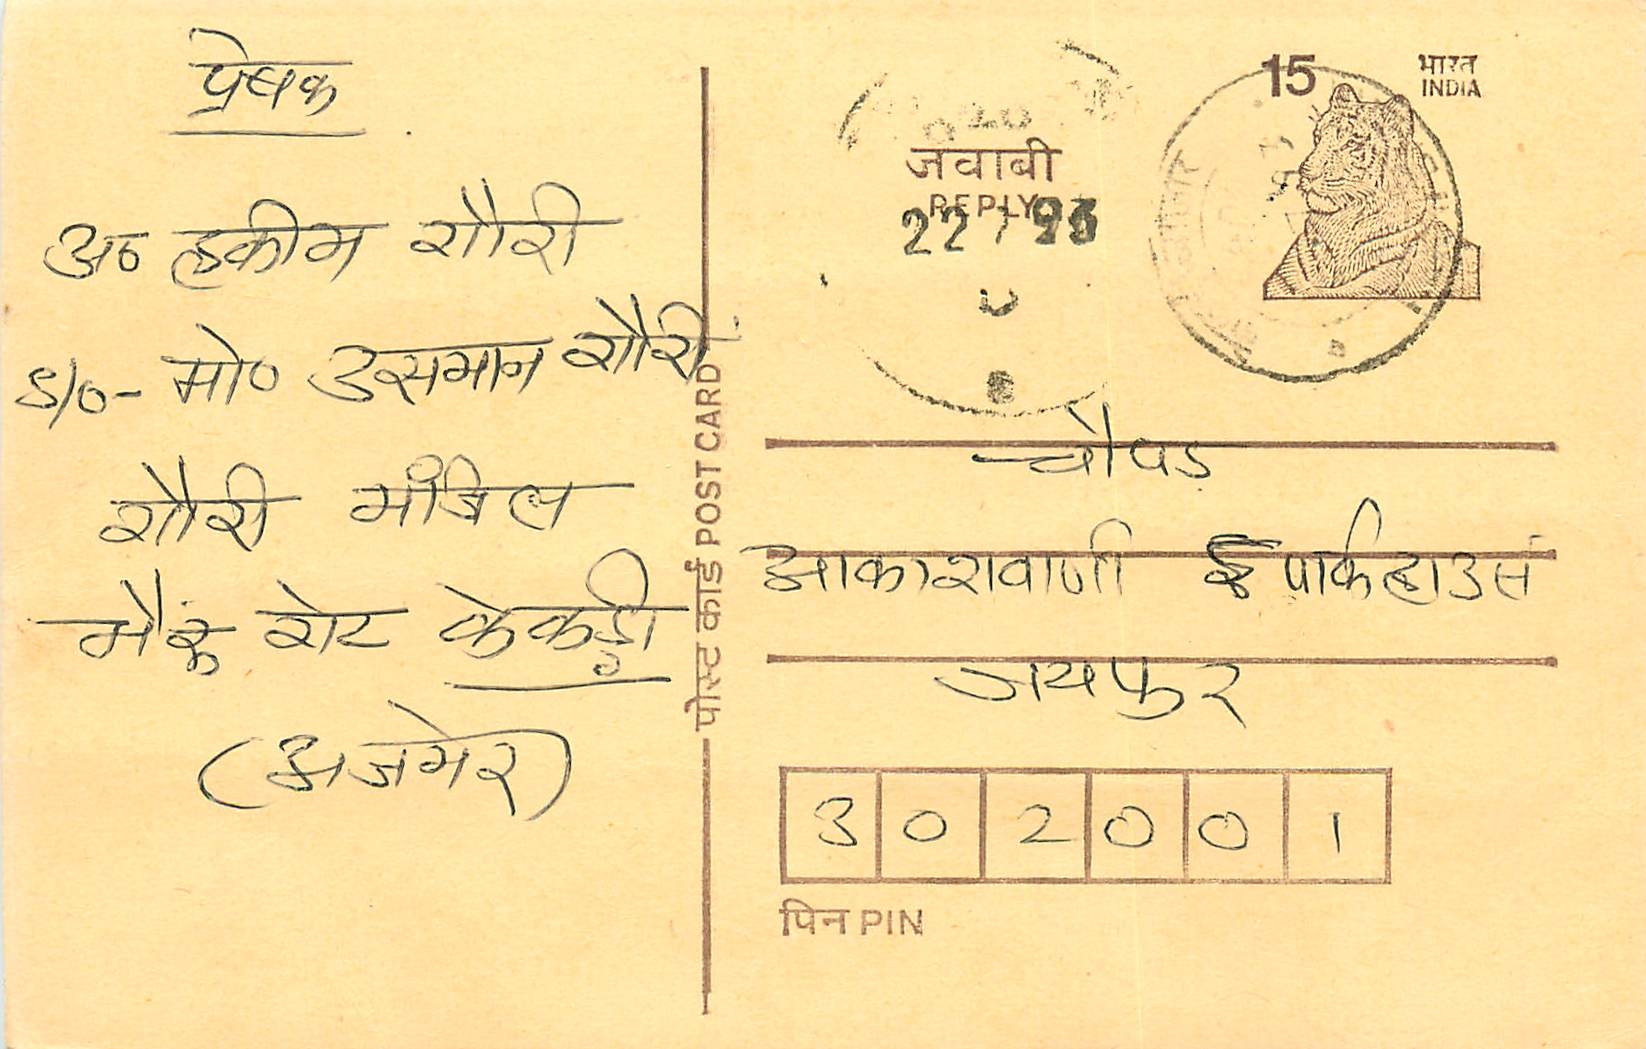 प्रेषक
अ० हकीम शौरी
S/o- मो० उसमान शौरी
शौरी मंजिल
भैरू गेट केकड़ी
(अजमेर)
पोस्ट कार्ड POST CARD
15
भारत
INDIA
जवाबी
REPLY
22 7 93
चौपड
आकाशवाणी पार्कहाउस
जयपुर
302001
पिन PIN